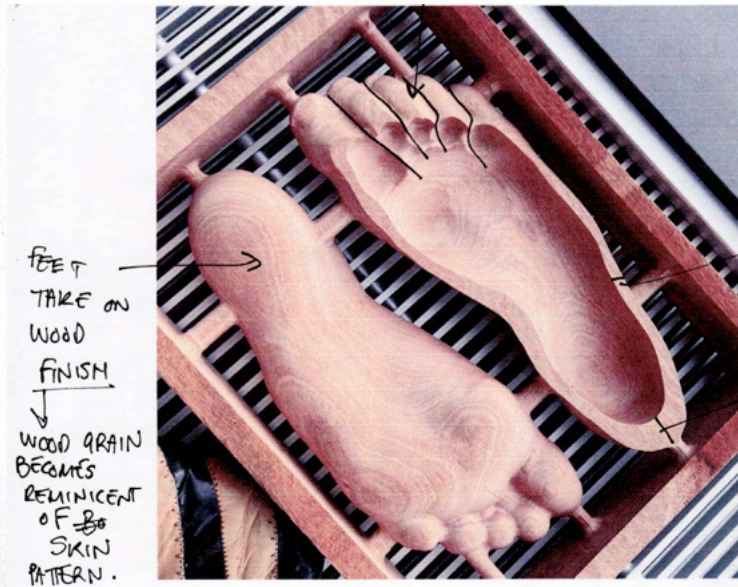 FEET
TAKE ON
WOOD
FINISH
WOOD GRAIN
BECOMES
REMINICENT
OF
SKIN
PATTERN.